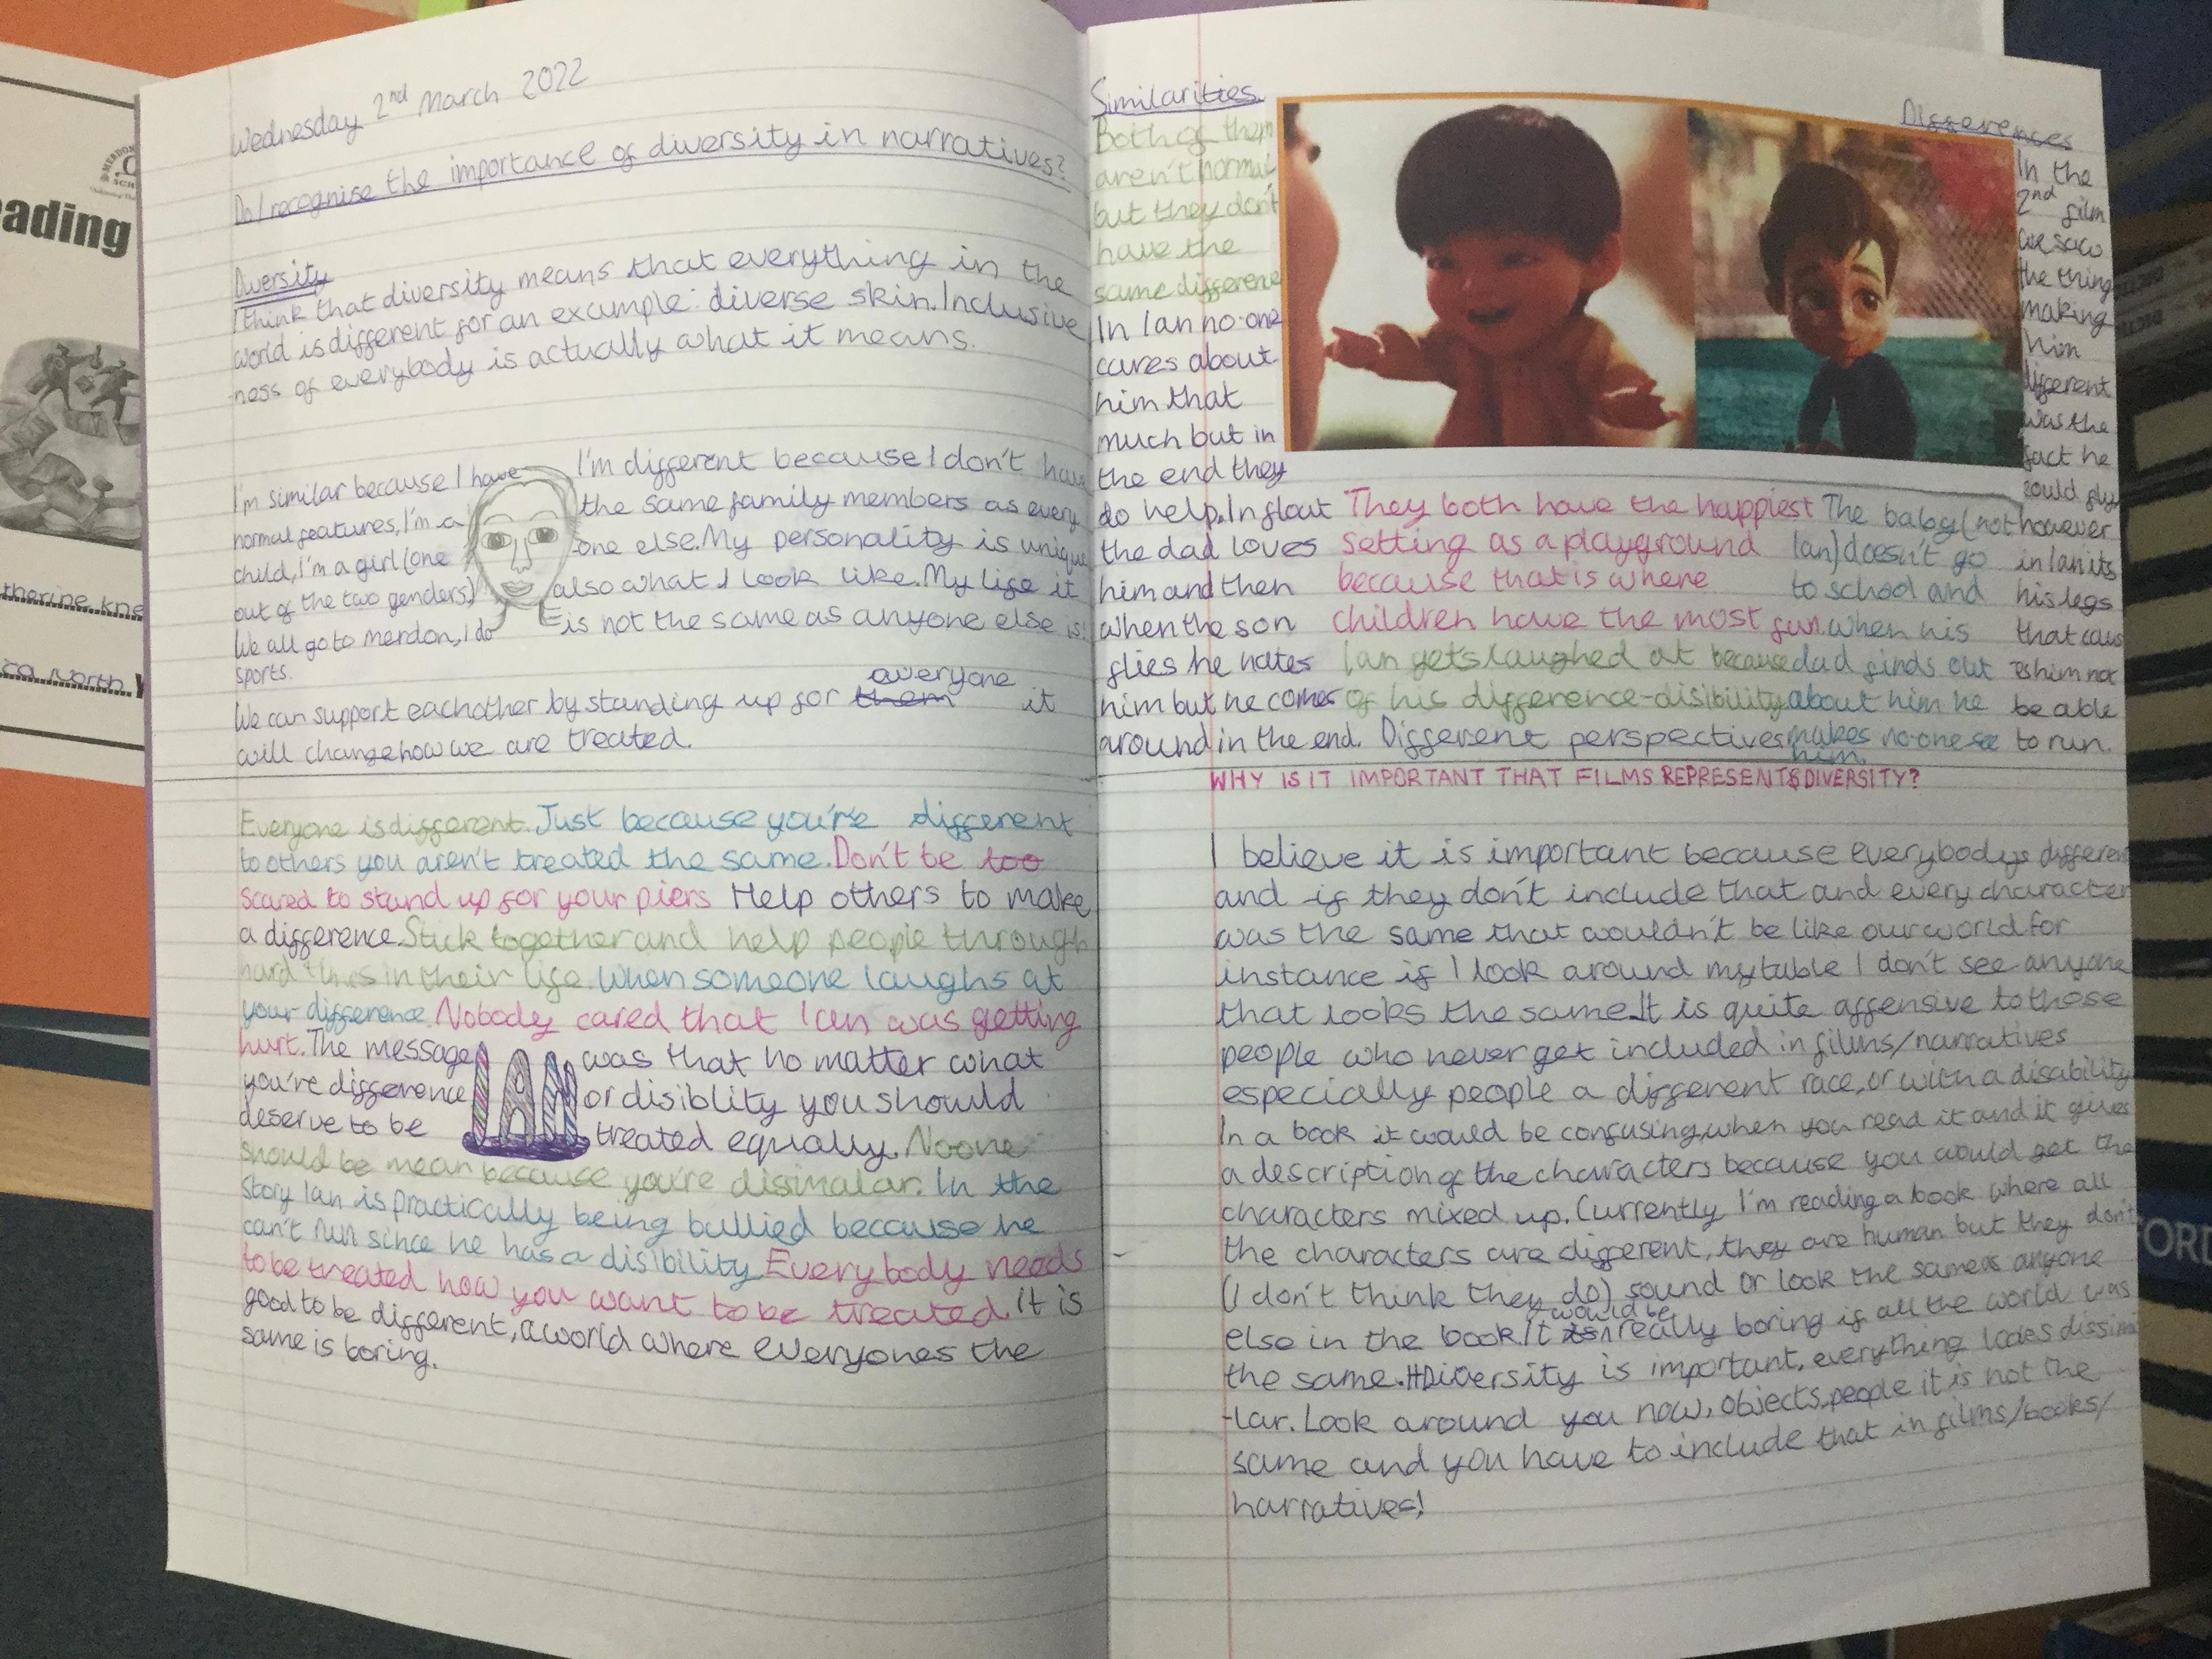 ading
therine kne
ica North W
FORD
Wednesday 2nd March 2022
Do I recognise the importance of diversity in narratives?
Diversity
I think that diversity means that everything in the
world is different for an example: diverse skin. Inclusive
-ness of everybody is actually what it means.
I'm similar because I have
normal features, I'm a
child, I'm a girl (one
out of the two genders)
We all go to merdon, I do
sports.
I'm different because I don't have
the same family members as every
-one else. My personality is unique
also what I look like. My life it
is not the same as anyone else is!
We can support eachother by standing up for them everyone it
will change how we are treated.
Everyone is different. Just because you're different
to others you aren't treated the same. Don't be too
scared to stand up for your piers Help others to make
a difference. Stick together and help people through
hard times in their life. When someone laughs at
your difference. Nobody cared that Ian was getting
hurt. The message IAN was that no matter what
you're difference or disiblity you should
deserve to be treated equally. Noone
should be mean because you're dissimalar. In the
story Ian is practically being bullied because he
can't run since he has a disibility. Everybody needs
to be treated how you want to be treated. It is
good to be different, a world where everyones the
same is boring.
Similarities
Both of them
aren't normal
but they don't
have the
same difference
In Ian no-one
cares about
him that
much but in
the end they
do help. In float
the dad loves
him and then
when the son
flies he hates
him but he comes
around in the end. Different perspectives
They both have the happiest
setting as a playground
because that is where
children have the most fun.
Ian gets laughed at because
of his difference-disibility
Differences
In the
2nd film
we saw
the thing
making
him
different
was the
fact he
could fly
however
in Ian its
his legs
that caus
es him not
be able
to run.
The baby (not
Ian) doesn't go
to school and
when his
dad finds out
about him he
makes no-one see
him.
WHY IS IT IMPORTANT THAT FILMS REPRESENTS DIVERSITY?
I believe it is important because everybodys different
and if they don't include that and every character
was the same that wouldn't be like our world for
instance if I look around my table I don't see anyone
that looks the same. It is quite offensive to those
people who never get included in films/narratives
especially people a different race, or with a disability
In a book it would be confusing, when you read it and it gives
a description of the characters because you would get the
characters mixed up. Currently I'm reading a book where all
the characters are different, they are human but they don't
(I don't think they do) sound or look the same as anyone
else in the book. It would be really boring if all the world was
the same. Diversity is important, everything looks dissimi
-lar. Look around you now, objects, people it is not the
same and you have to include that in films/books/
narratives!